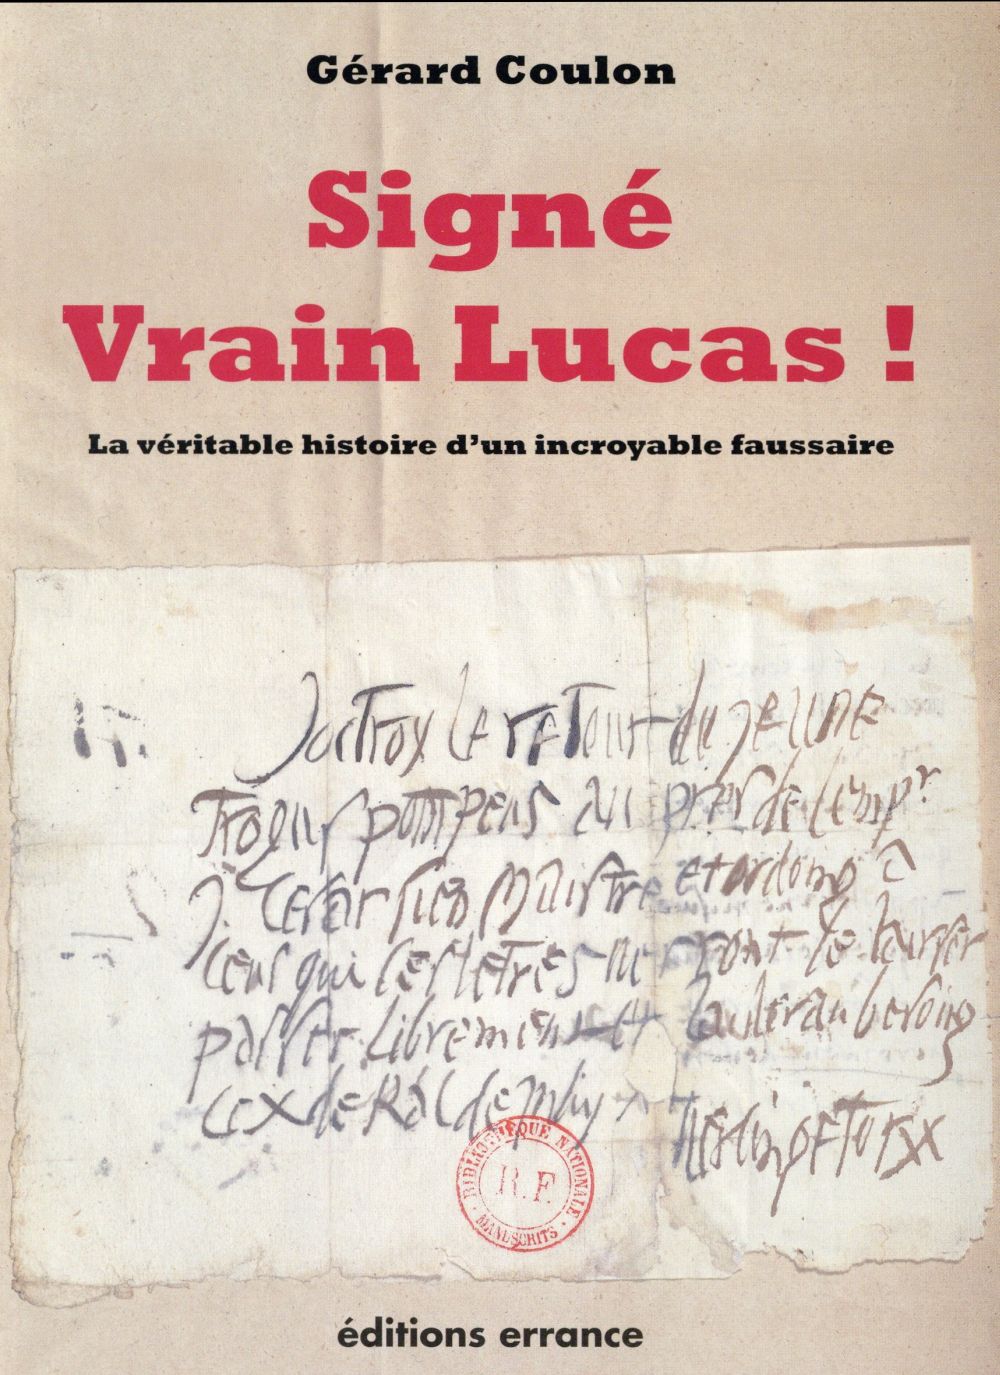 Gérard Coulon
Signé
Vrain Lucas !
La véritable histoire d'un incroyable faussaire
Joctroy le retour du jeune
Trogus pompeus au pres de lempr
J. Cesar sien Maistre et ordoing a
ceus qui ces letres verront le laisser
passer librement et laider au besoing
ce x de Kal de may
BIBLIOTHÈQUE NATIONALE
R.F.
MANUSCRITS
éditions errance